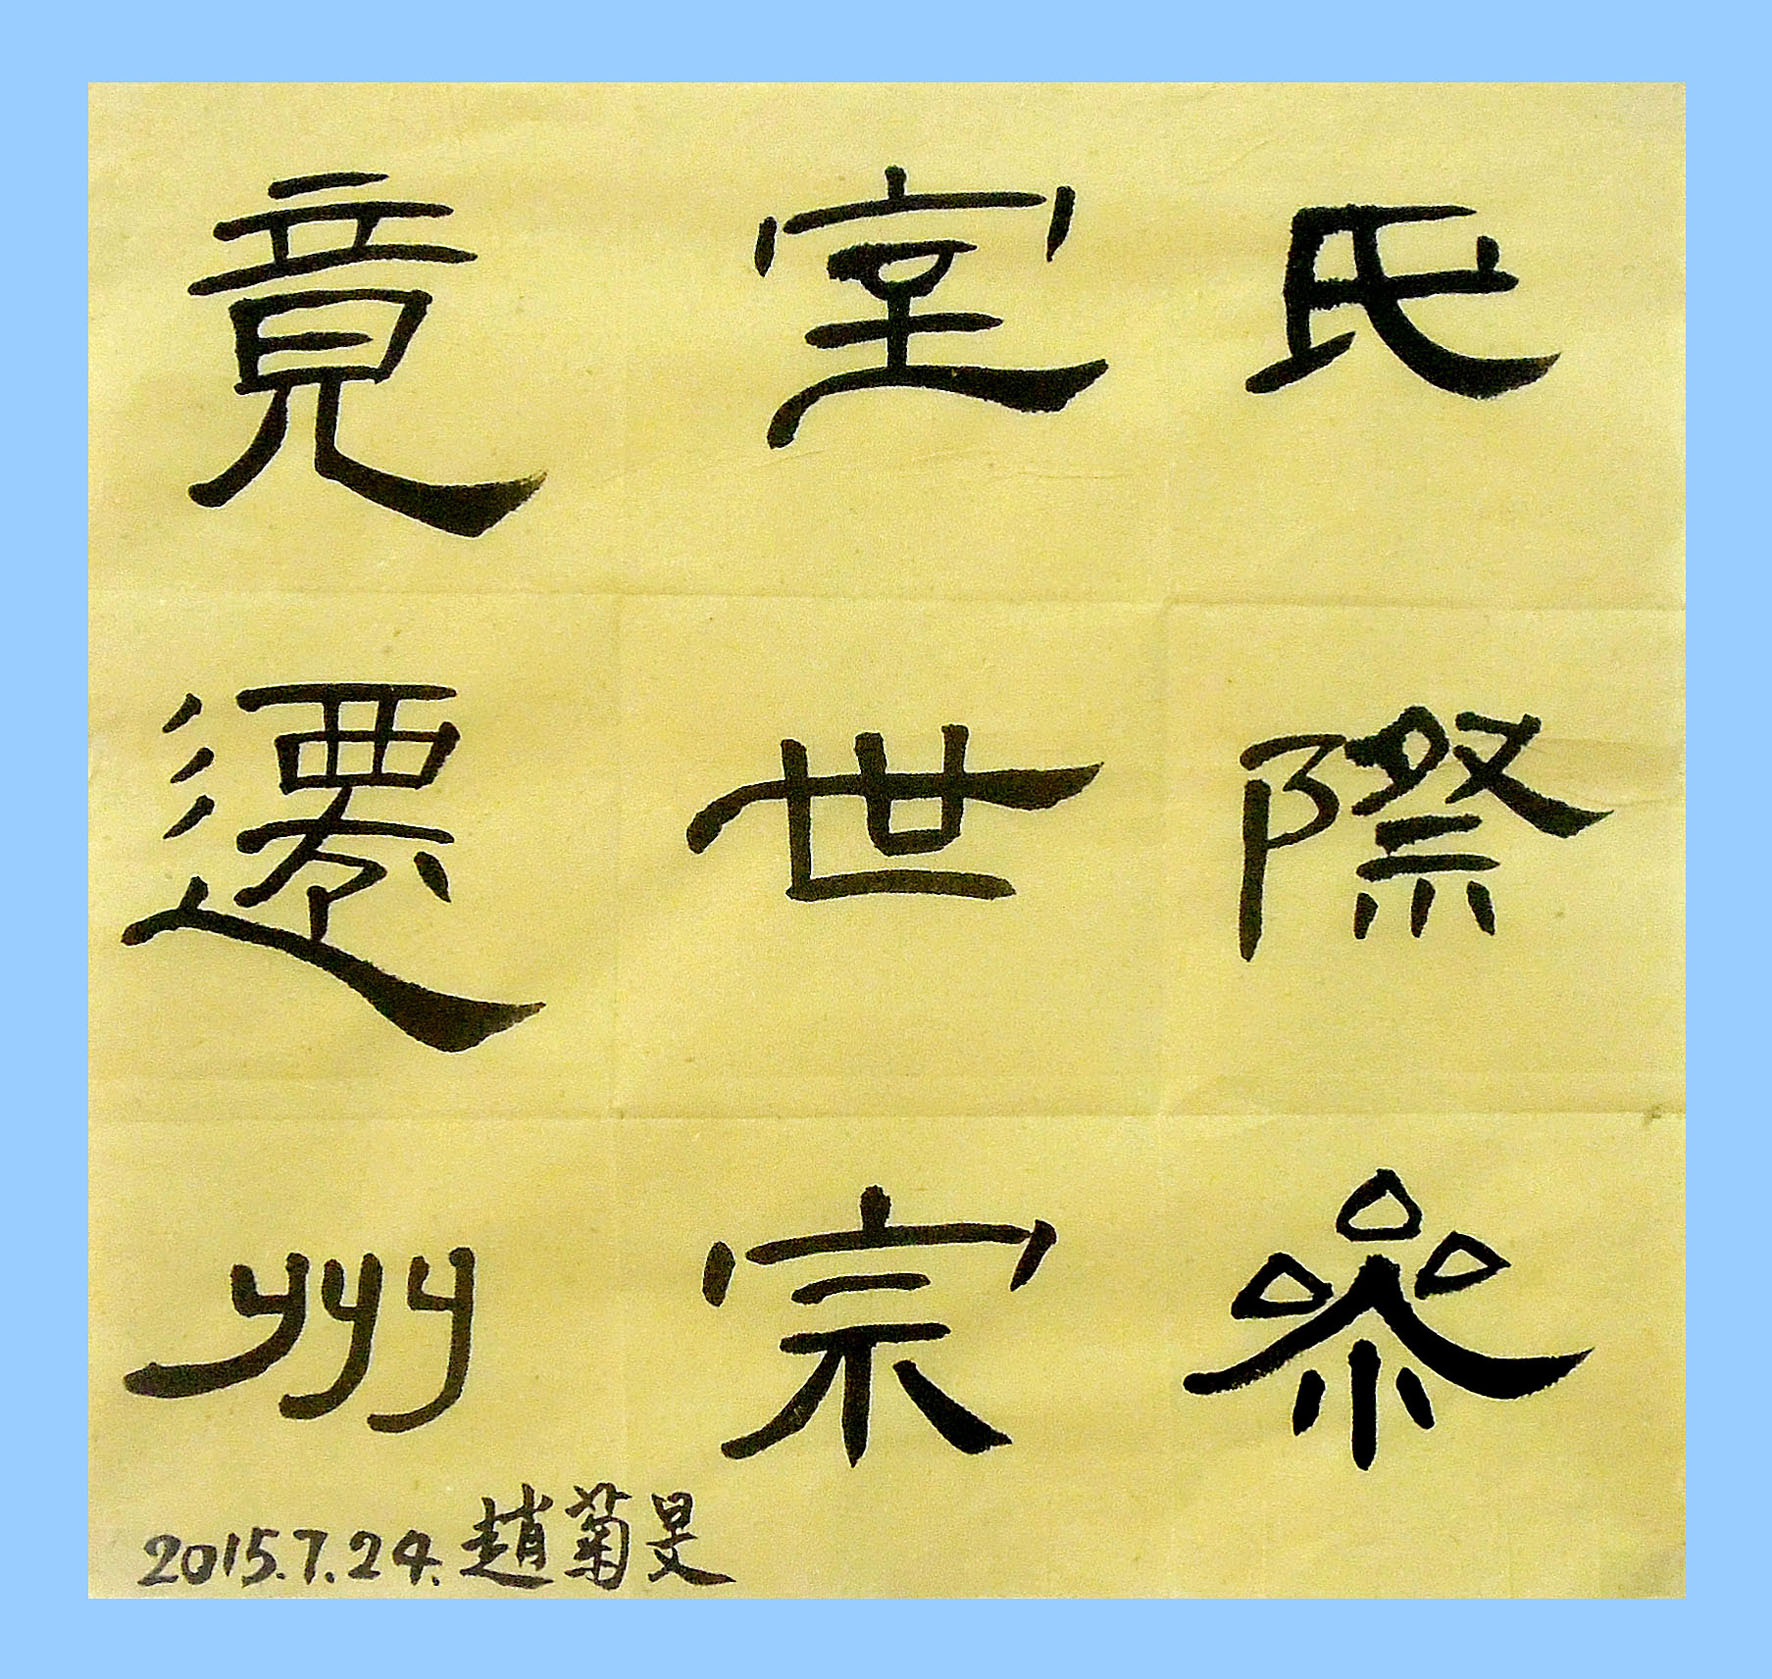 氏際參
室世宗
竟遷州
2015.7.24.趙菊旻